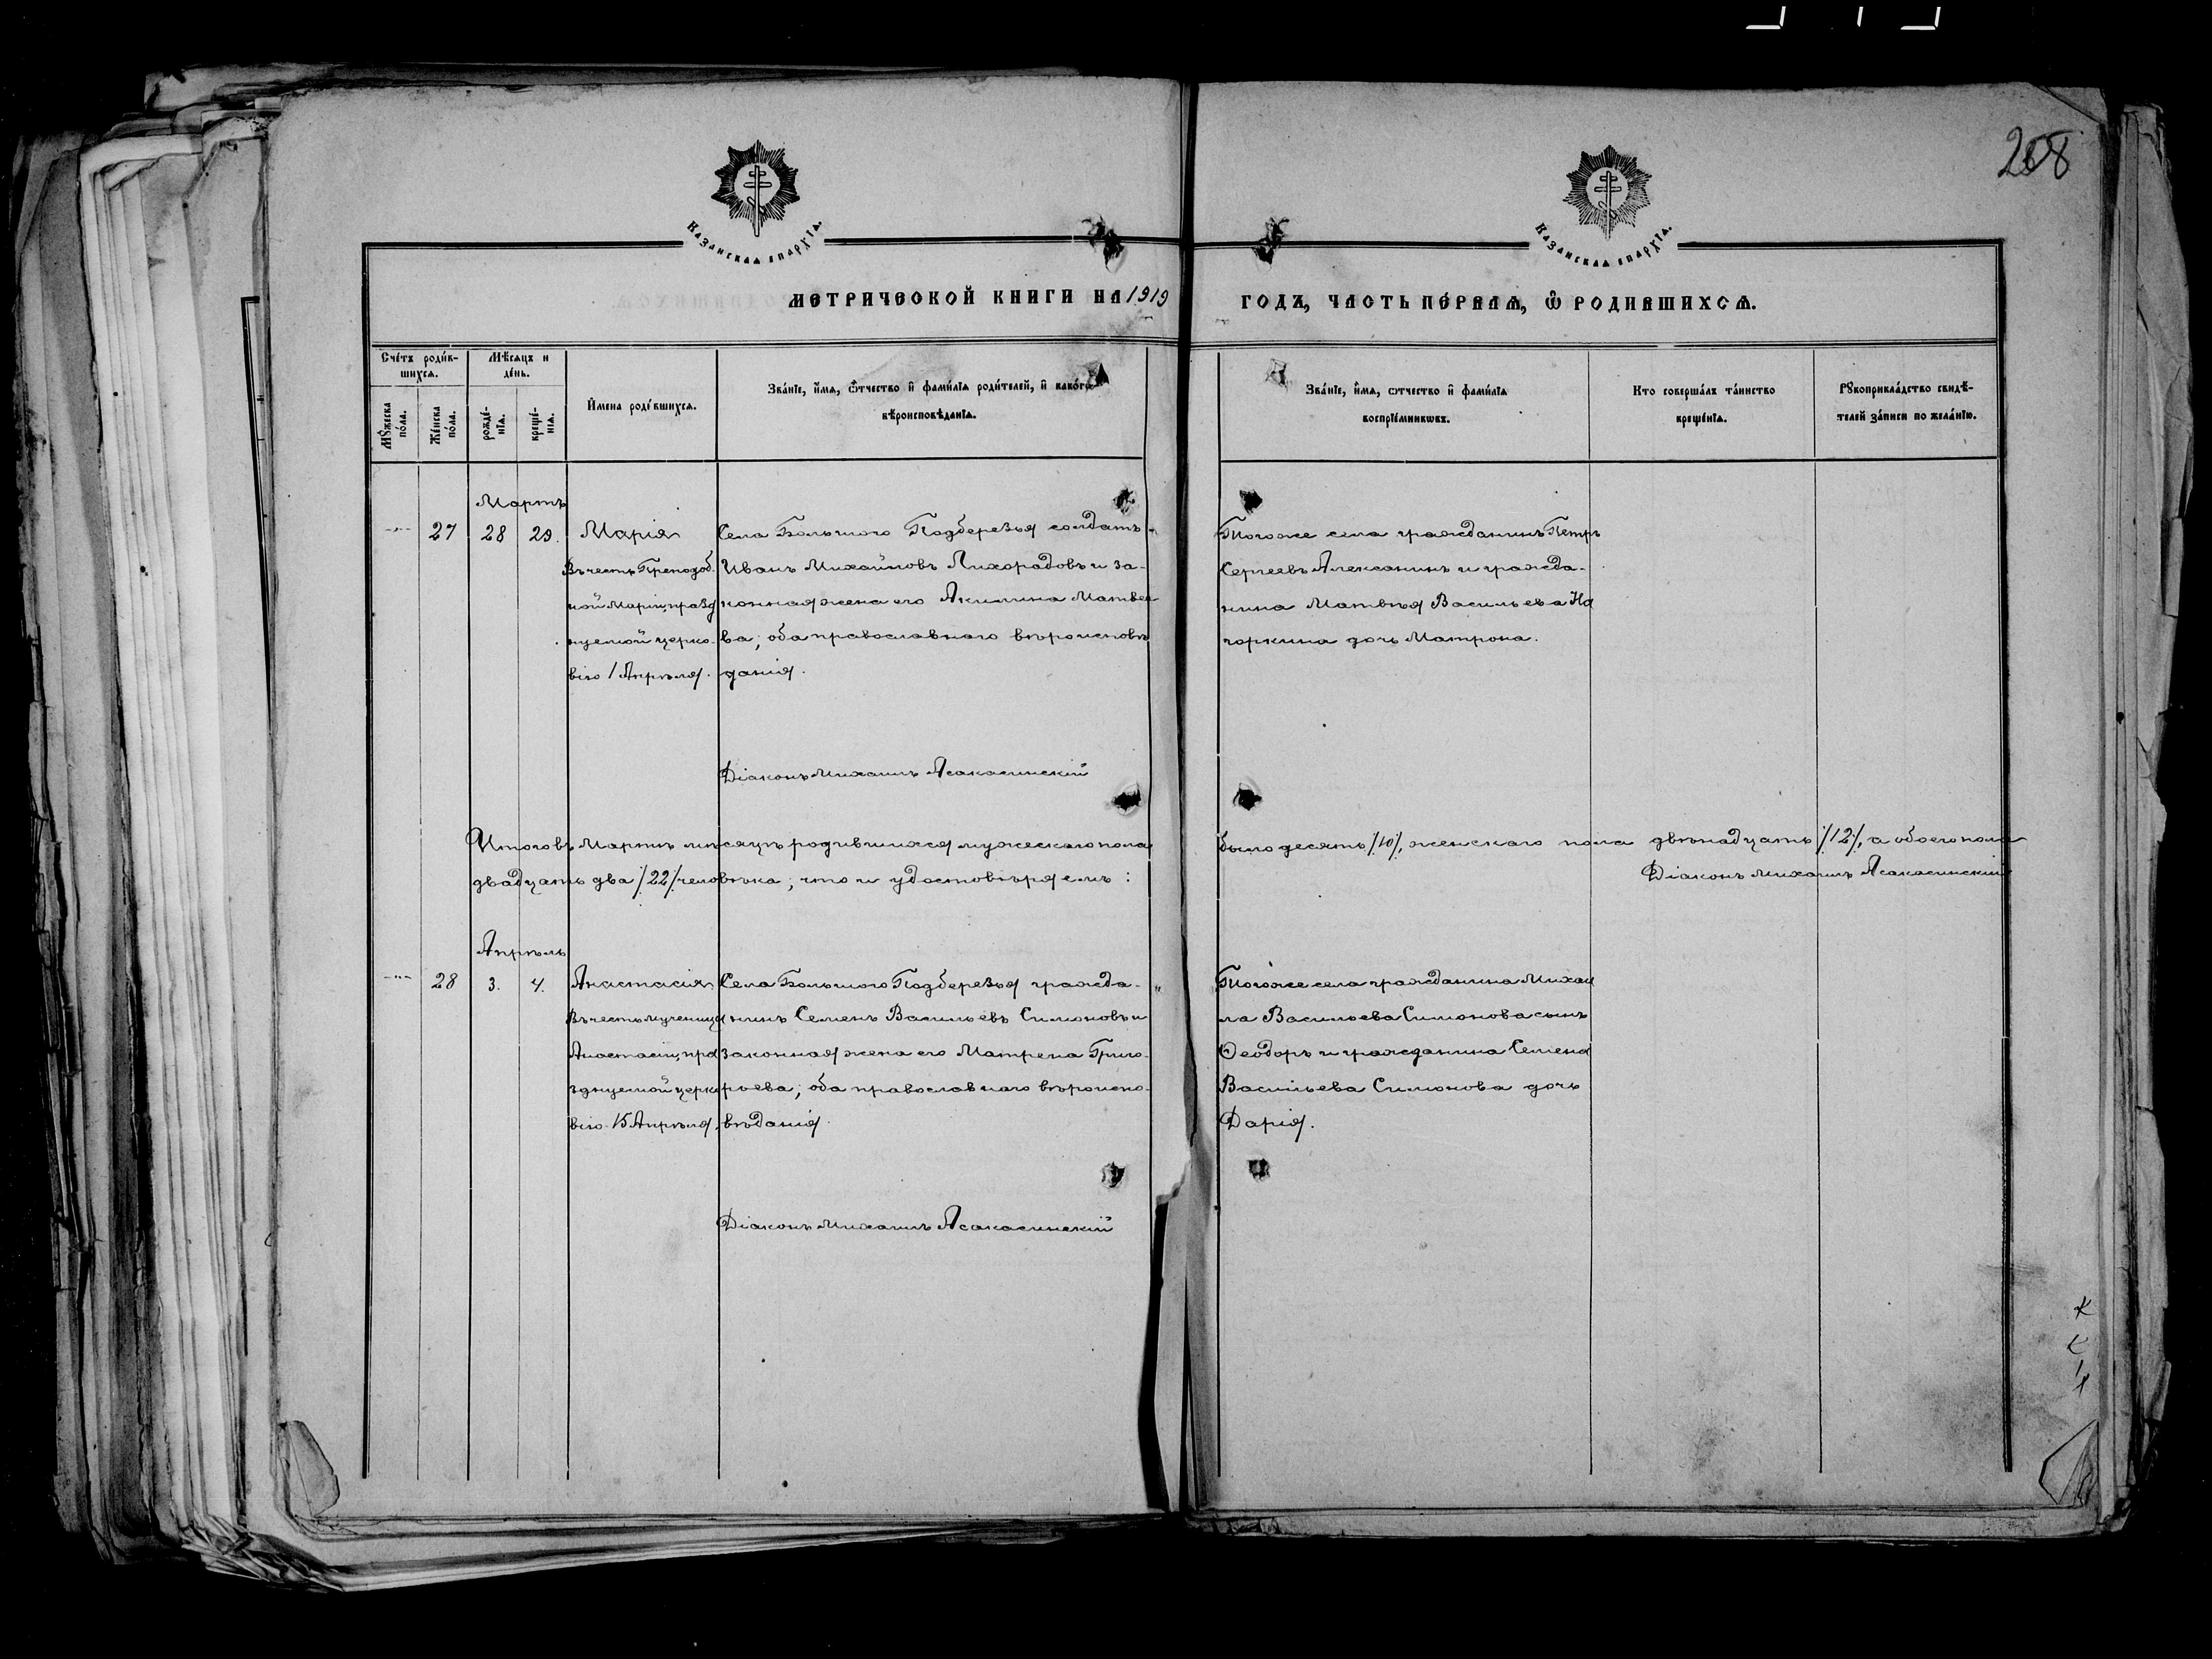 208
Казанская епархїя.
Казанская епархїя.
МЕТРИЧЕСКОЙ КНИГИ НА 1919
ГОДЪ, ЧАСТЬ ПЕ́РВАЯ, Ѿ РОДИВШИХСѦ.
Сче́тъ роди́в-
шихсѧ.
Мѣ́сяцъ и
де́нь.
Мꙋ́жеска
по́ла.
Же́нска
по́ла.
рожде́-
нїѧ.
креще́-
нїѧ.
И҆мена роди́вшихсѧ.
Зва́нїе, и҆́мѧ, ѻ҆́тчество и҆ фами́лїѧ роди́телей, и҆ како́гѡ
вѣроисповѣ́данїѧ.
Зва́нїе, и҆́мѧ, ѻ҆́тчество и҆ фами́лїѧ
воспрїе́мникѡвъ.
Кто соверша́лъ та́инство
креще́нїѧ.
Рꙋкоприкла́дство свидѣ́-
телей за́писи по жела́нїю.
Мартъ
27 28 29. Марія
Въ честь Преподоб.
ной Маріи, празд
нуемой церко-
вію 1 Апрѣля.
Села Большого Подберезья солдатъ
Иванъ Михайловъ Лихорадовъ и за-
конная жена его Акилина Матвее
ва; оба православнаго вѣроисповѣ
данія.
Тогоже села гражданинъ Петръ
Сергеевъ Алексанинъ и гражда-
нина Матвѣя Васильева На
горкина дочь Матрона.
Діаконъ Михаилъ Асакасинскій
Итого въ Мартѣ мѣсяцѣ родившихся мужескаго пола было десять /10/, женскаго пола двѣнадцать /12/, а обоего пола
двадцать два /22/ человѣка; что и удостовѣряемъ: Діаконъ Михаилъ Асакасинскій
Апрѣль
28 3. 4. Анастасія
Въ честь мученицы
Анастасіи, пра
зднуемой церко
вію 15 Апрѣля.
Села Большого Подберезья гражда-
нинъ Семенъ Васильевъ Симоновъ и
законная жена его Матрена Григо-
рьева; оба православнаго вѣроиспо-
вѣданія.
Тогоже села гражданина Михаи
ла Васильева Симонова сынъ
Ѳеодоръ и гражданина Семена
Васильева Симонова дочь
Дарія.
Діаконъ Михаилъ Асакасинскій